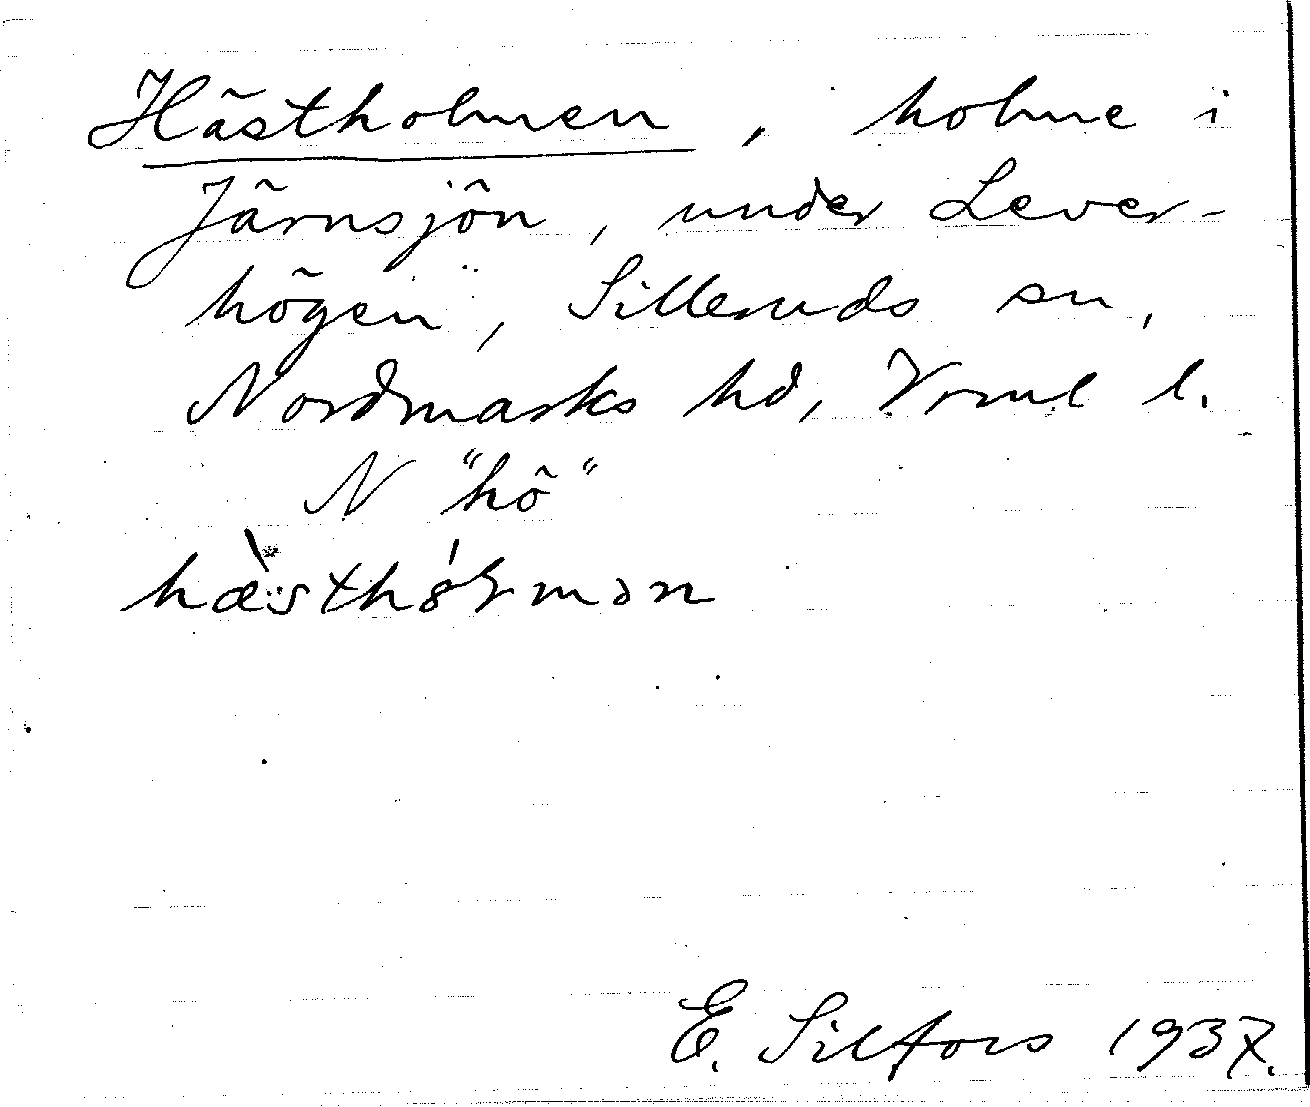 Hästholmen, holme i
Järnsjön, under Lever-
högen, Silleruds sn,
Nordmarks hd, Vrml l.
N "hö"
hæ̀sthó̤ɽmən
E. Silfors 1937.